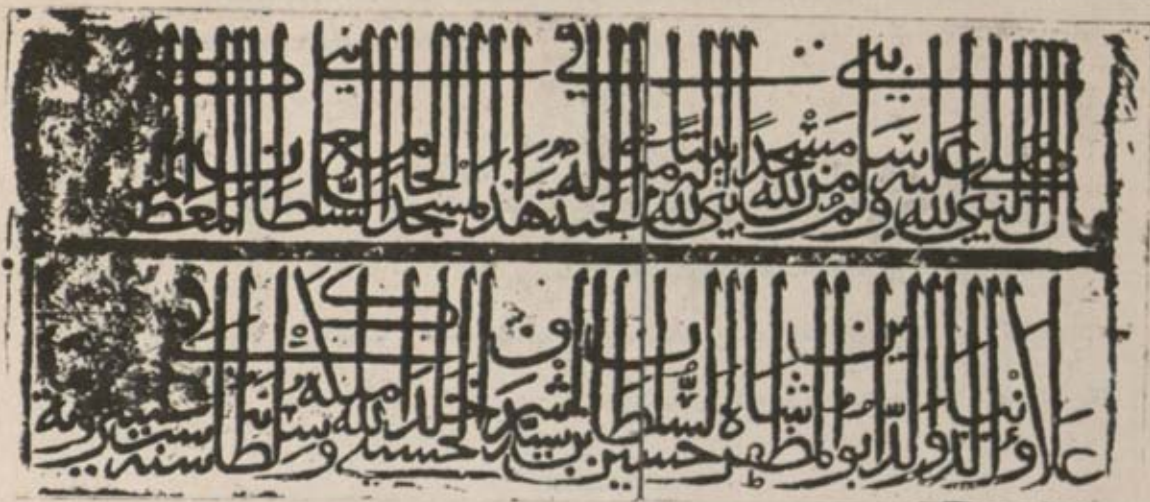 قال النبي صلى الله عليه وسلم من بنى لله مسجدا بنى الله له بيتا مثله في الجنة بنى هذا المسجد الجامع السلطان المعظم
علاء الدنيا والدين ابو المظفر حسين شاه السلطان بن سيد اشرف الحسيني خلد الله ملكه وسلطانه سنة